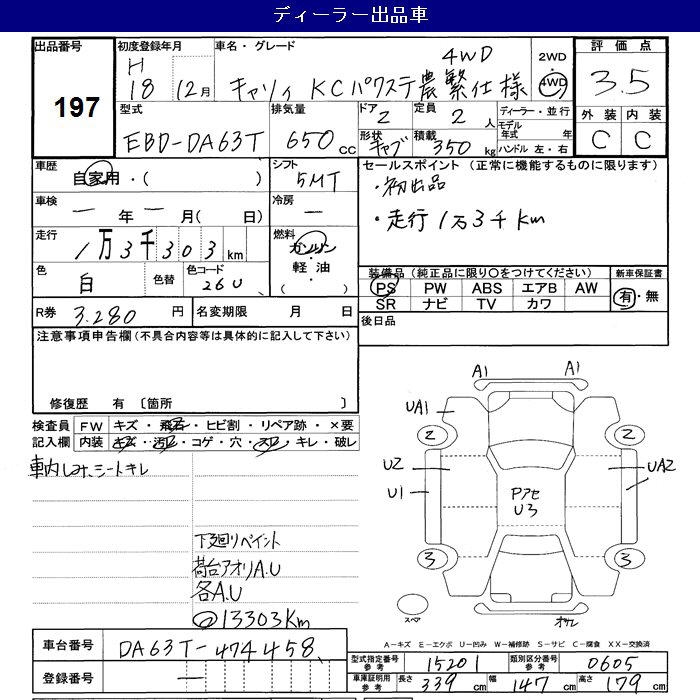 ディーラー出品車
出品番号
197
初度登録年月
H
18 12月
車名・グレード
4WD
キャリィ KC パワステ農繁仕様
2WD
・
4WD
評価点
3.5
外装 内装
C C
型式
EBD-DA63T
排気量
650cc
ドア
2
定員
2人
形状
キャブ
積載
350kg
ディーラー・並行
モデル年式 年
ハンドル 左・右
車歴
自家用・( )
シフト
5MT
セールスポイント(正常に機能するものに限ります)
・初出品
・走行 1万3千km
車検
ー年ー月( 日)
冷房
ー
走行
1万3千303km
燃料
ガソリン
・
軽油
( )
色
白
色替
色コード
26U
装備品(純正品に限り○をつけてください)
PS PW ABS エアB AW
SR ナビ TV カワ
新車保証書
有・無
R券 3.280円
名変期限 月 日
後日品
注意事項申告欄(不具合内容等は具体的に記入して下さい)
修復歴 有 〔箇所 〕
検査員 FW キズ・飛石・ヒビ割・リペア跡・×要
記入欄 内装 キズ・汚レ・コゲ・穴・スレ・キレ・破レ
車内しみ、シートキレ
下廻リペイント
荷台アオリA.U
各A.U
@13303Km
A1 A1
UA1
2 2
U2 UA2
U1
Pアセ
U3
3 3
スペア
A－キズ E－エクボ U－凹み W－補修跡 S－サビ C－腐食 XX－交換済
車台番号 DA63T-474458
登録番号 ー
型式指定番号
参考
15201
類別区分番号
参考
0605
車庫証明用
参考
長さ 339cm 幅 147cm 高さ 179cm